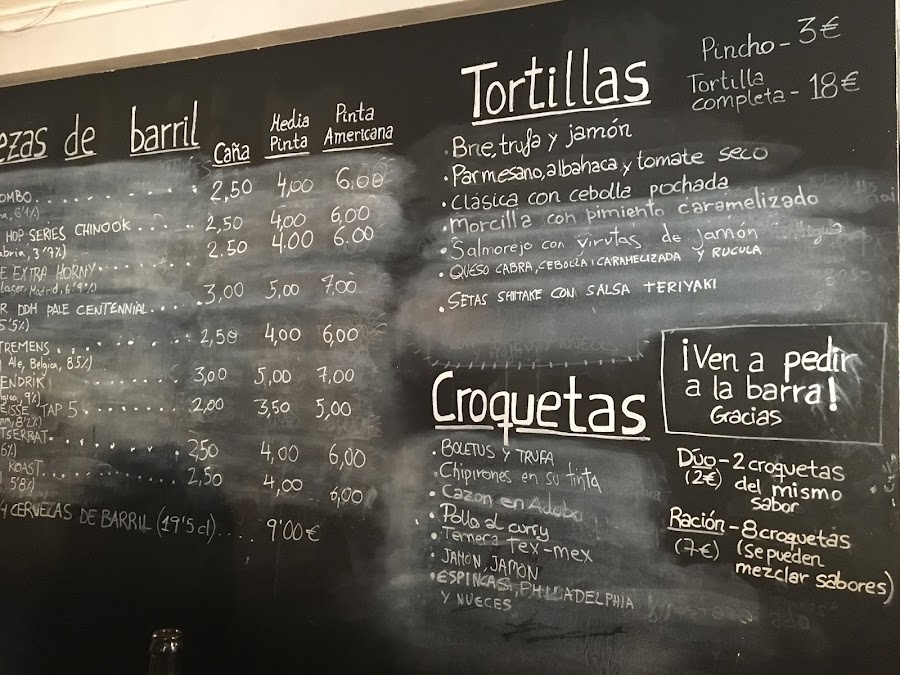 Pincho - 3€
Tortilla
completa - 18€
Tortillas
· Brie, trufa y jamón
· Parmesano, albahaca y tomate seco
· Clásica con cebolla pochada
· Morcilla con pimiento caramelizado
· Salmorejo con virutas de jamón
· QUESO CABRA, CEBOLLA CARAMELIZADA Y RUCULA
· SETAS SHIITAKE CON SALSA TERIYAKI
de barril
Caña Media Pinta Pinta Americana
OMBO........ 2,50 4,00 6,00
HOP SERIES CHINOOK.... 2,50 4,00 6,00
bria, 3'9%) 2.50 4.00 6.00
E EXTRA HORNY....... 3,00 5,00 7,00
Madrid, 6'9%)
R DDH PALE CENTENNIAL...
5'5%) 2,50 4,00 6,00
TREMENS........
Ale, Belgica, 8'5%) 3,00 5,00 7,00
ENDRIK........
gica, 9%) 2,00 3,50 5,00
EISSE TAP 5........
8'2%)
TSERRAT........ 2,50 4,00 6,00
6%)
ROAST........ 2,50 4,00 6,00
5'8%)
4 CERVEZAS DE BARRIL (19'5 cl)..... 9'00€
¡Ven a pedir
a la barra!
Gracias
Croquetas
· BOLETUS Y TRUFA
· Chipirones en su tinta
· Cazon en Adobo
· Pollo al curry
· Ternera Tex-mex
· JAMÓN, JAMÓN
· ESPINCAS, PHILADELPHIA
Y NUECES
Dúo - 2 croquetas
(2€) del mismo
sabor
Ración - 8 croquetas
(7€) (se pueden
mezclar sabores)